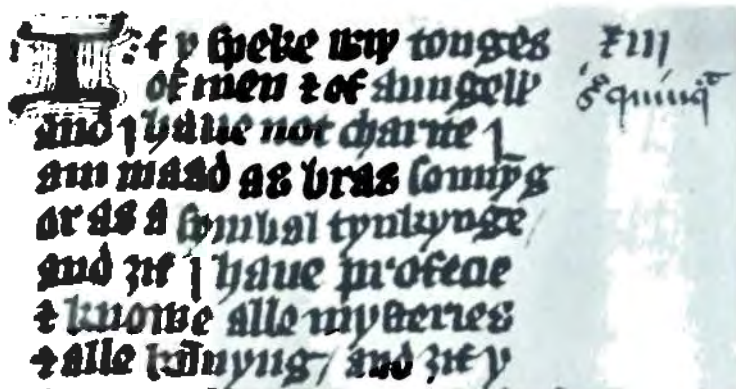 If y speke wiþ tonges xiii
of men ⁊ of aungelis quinqᵃ
and I haue not charite I
am maad as bras sounȳg
or as a symbal tynkynge /
and ȝif I haue profecie
⁊ knowe alle mysteries
⁊ alle kūnyng / and ȝif y